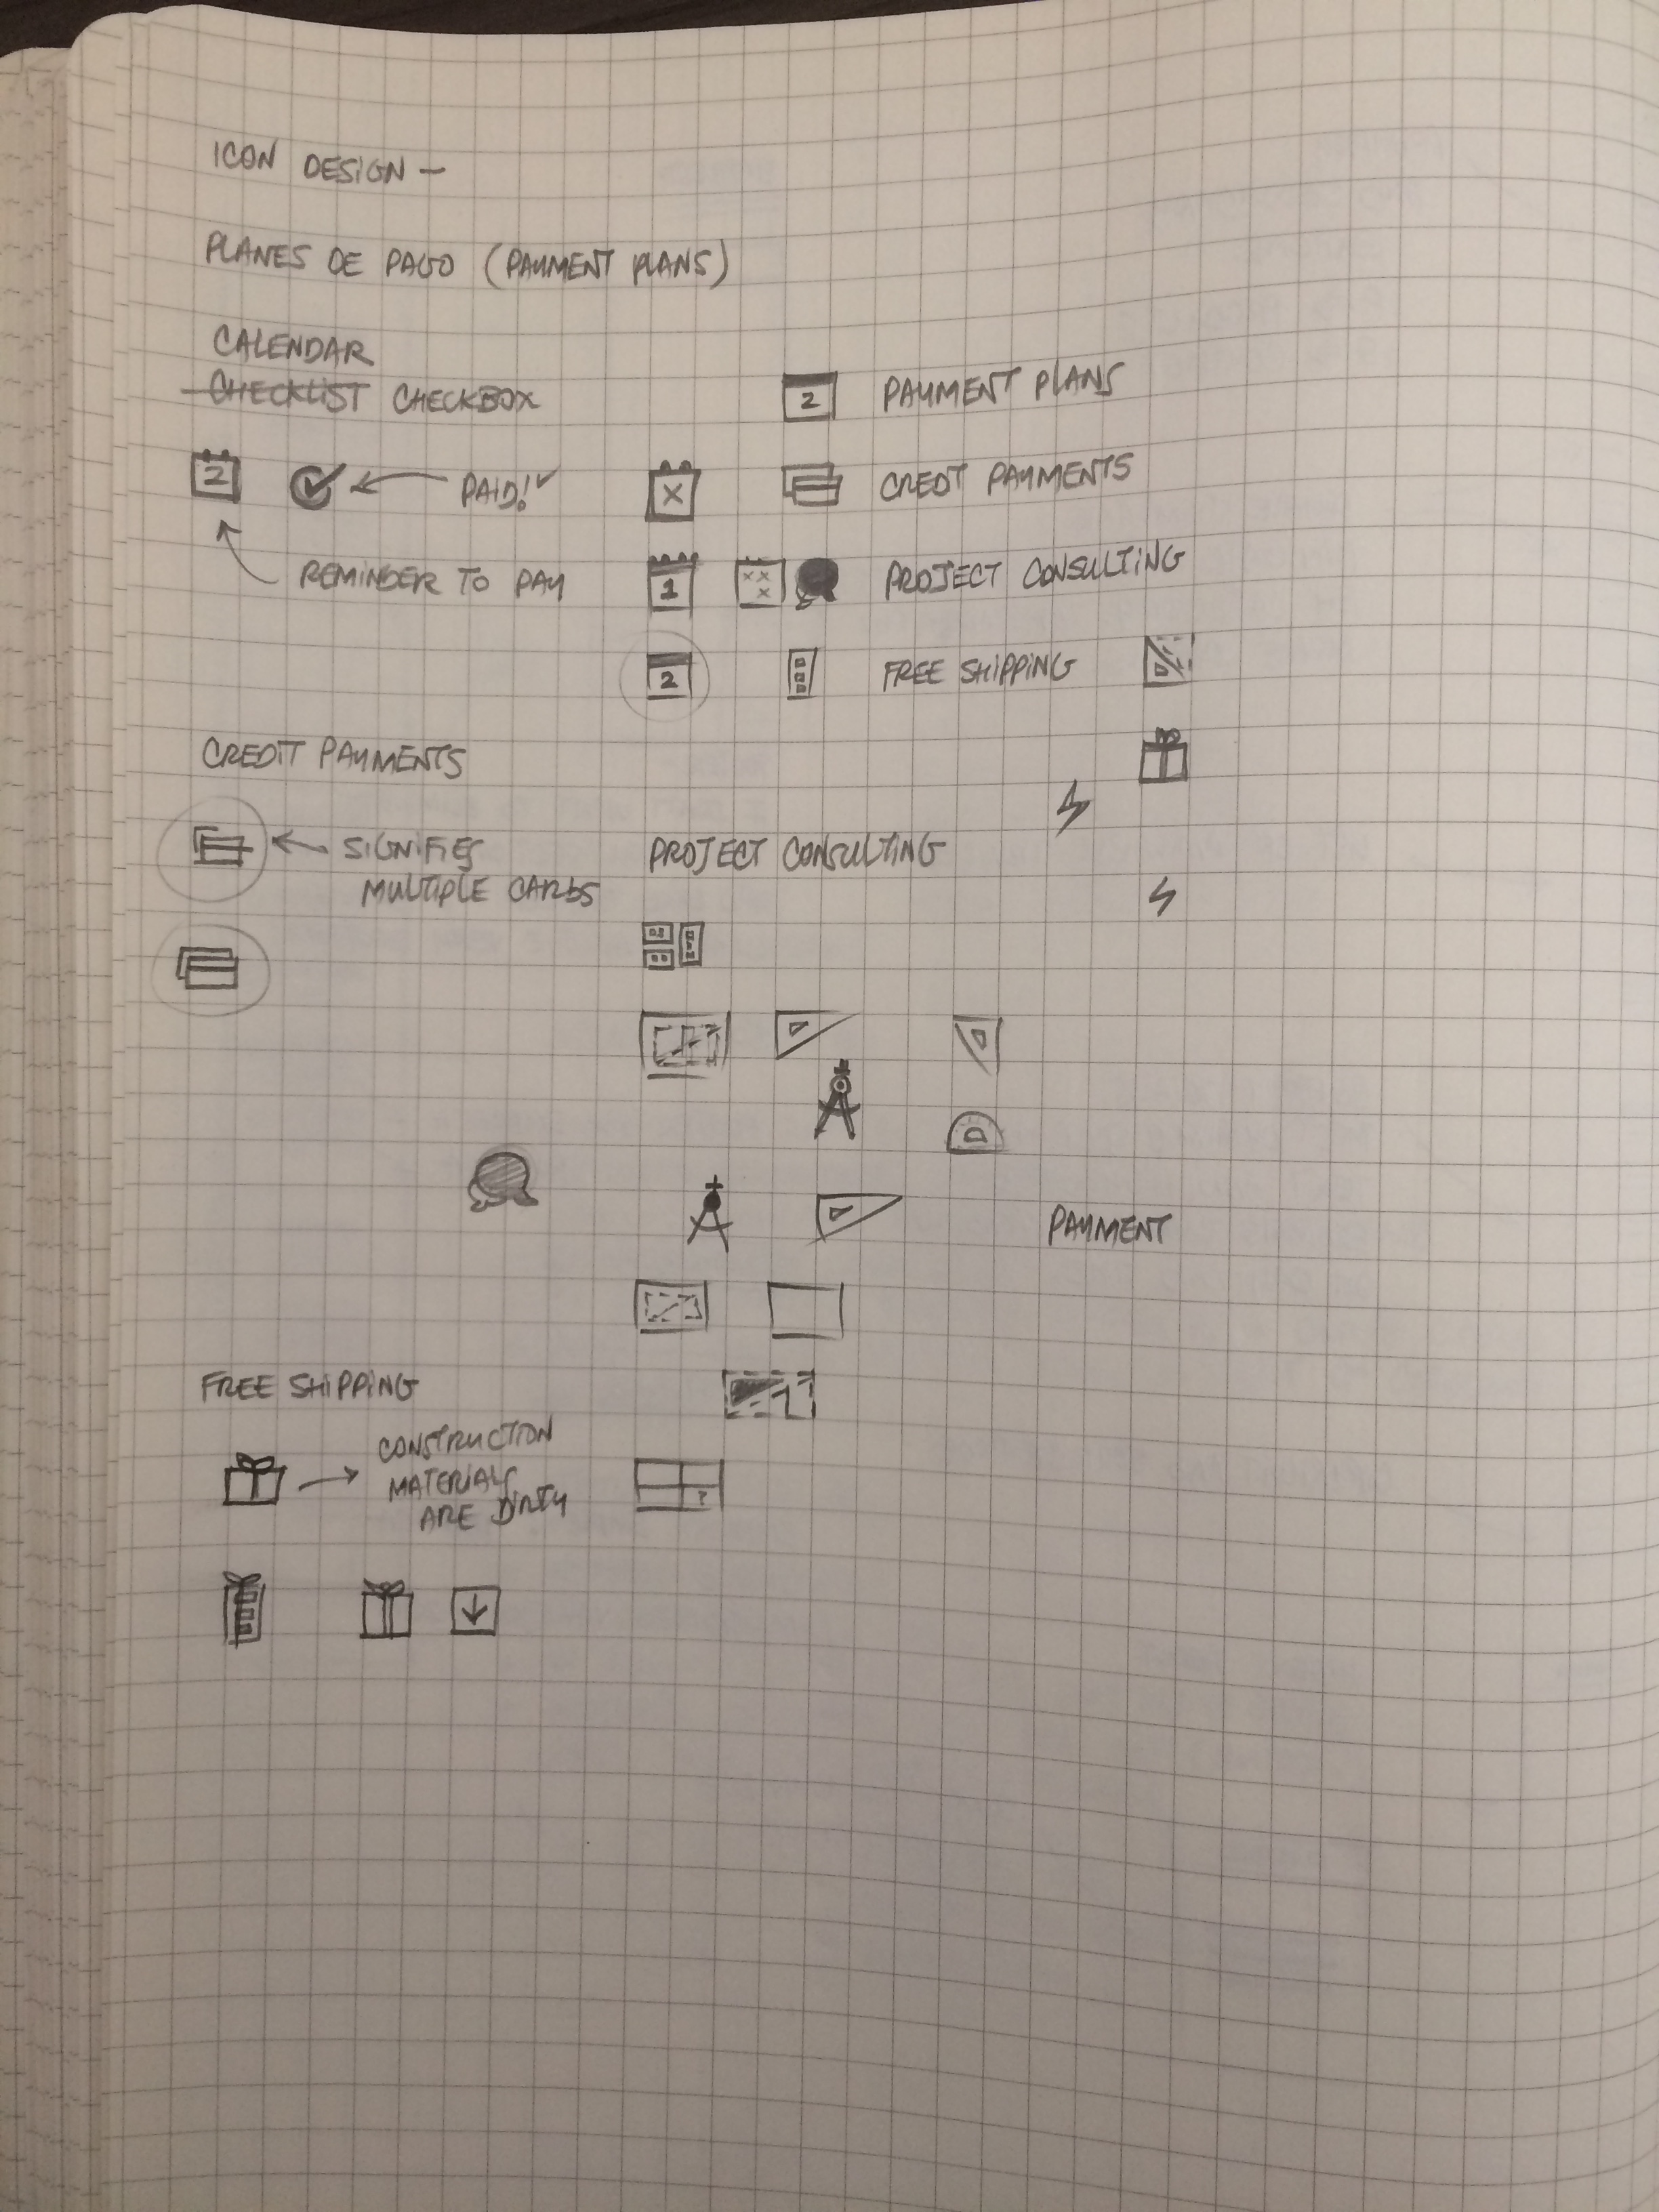 ICON DESIGN —
PLANES DE PAGO (PAYMENT PLANS)
CALENDAR
CHECKLIST CHECKBOX
2 PAYMENT PLANS
2 PAID! X CREDT PAYMENTS
REMINDER TO PAY 1 X X X PROJECT CONSULTING
2 FREE SHIPPING
CREDIT PAYMENTS
SIGNIFIES
MULTIPLE CARDS
PROJECT CONSULTING
PAYMENT
FREE SHIPPING
CONSTRUCTION
MATERIALS
ARE DIRTY
?